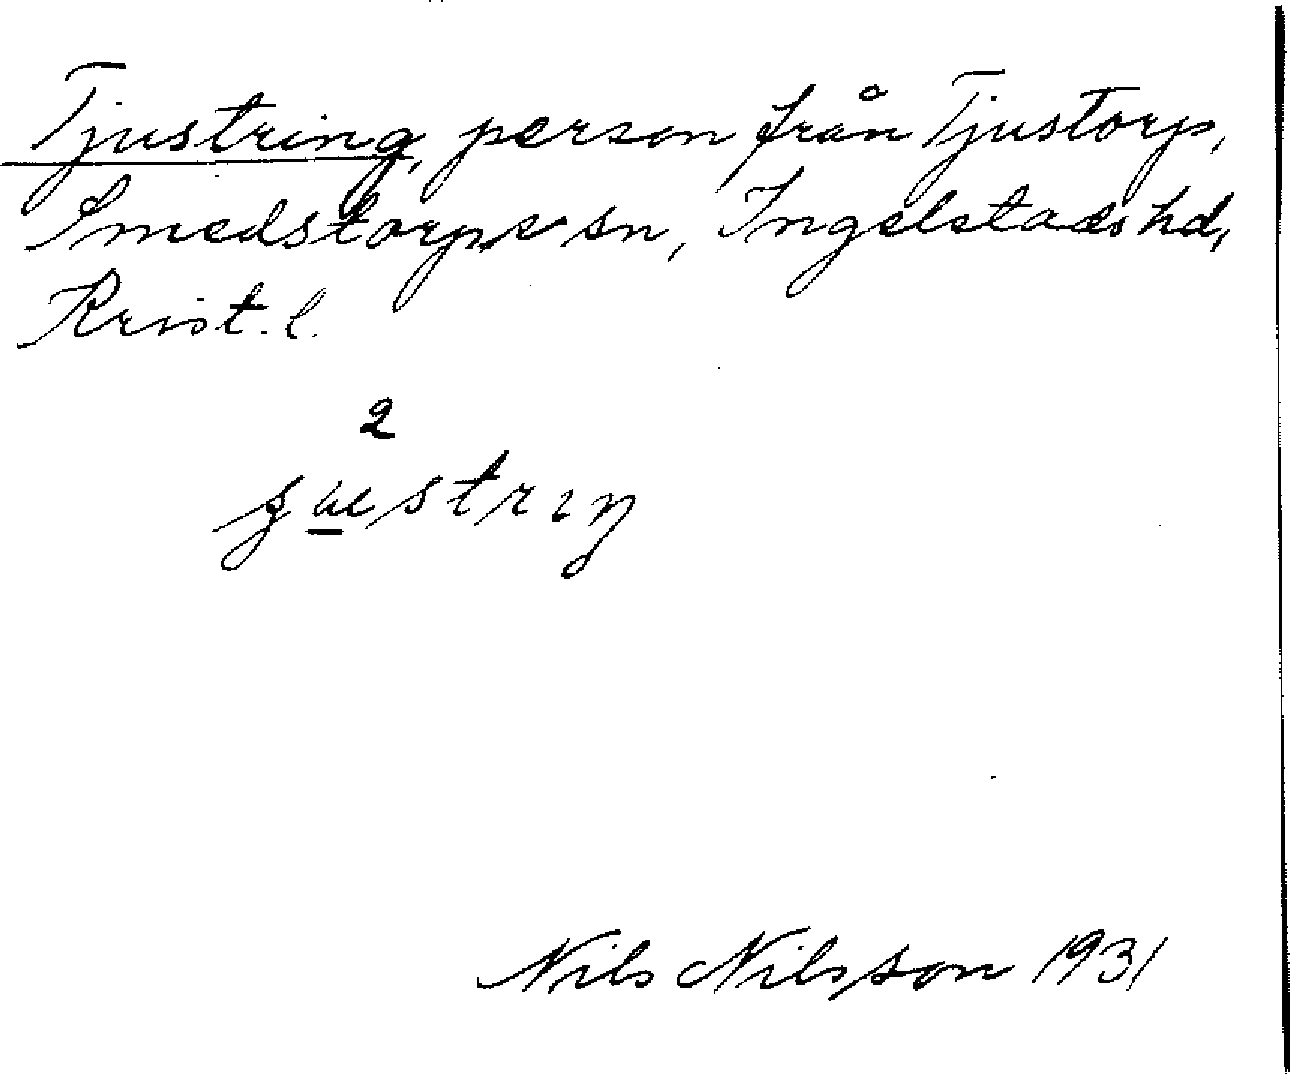 Tjustring, person från Tjustorp,
Smedstorps sn, Ingelstads hd,
Krist. l.
2
Nils Nilsson 1931